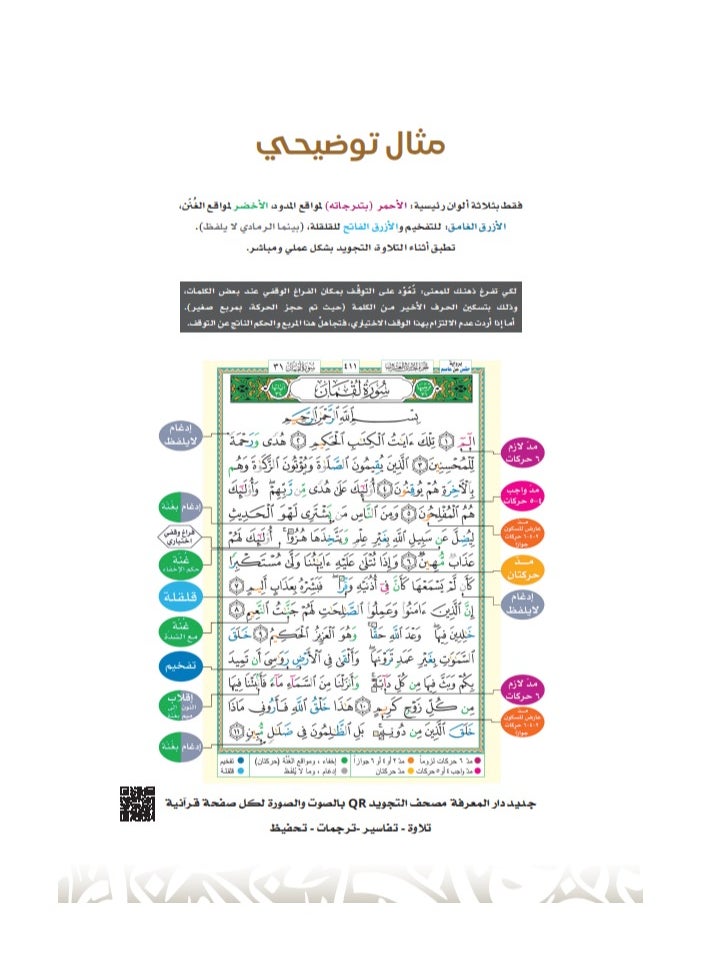 مثال توضيحي
فقط بثلاثة ألوان رئيسية: الأحمر (بتدرجاته) لمواقع المدود، الأخضر لمواقع الغُنَن،
الأزرق الغامق: للتفخيم والأزرق الفاتح للقلقلة، (بينما الرمادي لا يلفظ).
تطبق أثناء التلاوة، التجويد بشكل عملي ومباشر.
لكي تفرغ ذهنك للمعنى: تُعَوَّد على التوقُف بمكان الفراغ الوقفي عند بعض الكلمات،
وذلك بتسكين الحرف الأخير من الكلمة (حيث تم حجز الحركة، بمربع صغير).
أما إذا أردت عدم الالتزام بهذا الوقف الاختياري، فتجاهلْ هذا المربع والحكم الناتج عن التوقف.
برواية
حفص عن عاصم
٤١١
سُورَةُ لُقْمَان ٣١
سُورَةُ لُقْمَان
بِسْمِ اللَّهِ الرَّحْمَٰنِ الرَّحِيمِ
الٓمٓ ١ تِلْكَ ءَايَٰتُ الْكِتَٰبِ الْحَكِيمِ ٢ هُدًى وَرَحْمَةً
لِّلْمُحْسِنِينَ ٣ الَّذِينَ يُقِيمُونَ الصَّلَوٰةَ وَيُؤْتُونَ الزَّكَوٰةَ وَهُم
بِالْءَاخِرَةِ هُمْ يُوقِنُونَ ٤ أُوْلَٰٓئِكَ عَلَىٰ هُدًى مِّن رَّبِّهِمْ وَأُوْلَٰٓئِكَ
هُمُ الْمُفْلِحُونَ ٥ وَمِنَ النَّاسِ مَن يَشْتَرِى لَهْوَ الْحَدِيثِ
لِيُضِلَّ عَن سَبِيلِ اللَّهِ بِغَيْرِ عِلْمٍ وَيَتَّخِذَهَا هُزُوًا أُوْلَٰٓئِكَ لَهُمْ
عَذَابٌ مُّهِينٌ ٦ وَإِذَا تُتْلَىٰ عَلَيْهِ ءَايَٰتُنَا وَلَّىٰ مُسْتَكْبِرًا
كَأَن لَّمْ يَسْمَعْهَا كَأَنَّ فِىٓ أُذُنَيْهِ وَقْرًا فَبَشِّرْهُ بِعَذَابٍ أَلِيمٍ ٧
إِنَّ الَّذِينَ ءَامَنُوا وَعَمِلُوا الصَّٰلِحَٰتِ لَهُمْ جَنَّٰتُ النَّعِيمِ ٨
خَٰلِدِينَ فِيهَا وَعْدَ اللَّهِ حَقًّا وَهُوَ الْعَزِيزُ الْحَكِيمُ ٩ خَلَقَ
السَّمَٰوَٰتِ بِغَيْرِ عَمَدٍ تَرَوْنَهَا وَأَلْقَىٰ فِى الْأَرْضِ رَوَٰسِىَ أَن تَمِيدَ
بِكُمْ وَبَثَّ فِيهَا مِن كُلِّ دَآبَّةٍ وَأَنزَلْنَا مِنَ السَّمَآءِ مَآءً فَأَنۢبَتْنَا فِيهَا
مِن كُلِّ زَوْجٍ كَرِيمٍ ١٠ هَٰذَا خَلْقُ اللَّهِ فَأَرُونِى مَاذَا
خَلَقَ الَّذِينَ مِن دُونِهِ بَلِ الظَّٰلِمُونَ فِى ضَلَٰلٍ مُّبِينٍ ١١
مدّ لازم
٦ حركات
مدّ واجب
٤-٥ حركات
مـد
عارض للسكون
٢-٤-٦ حركات
جوازاً
مـد
حركتان
إدغام
لا يلفظ
مدّ لازم
٦ حركات
مـد
عارض للسكون
٢-٤-٦ حركات
جوازاً
إدغام
لا يلفظ
إدغام بغنة
فراغ وقفي
اختياري
غُنّة
حكم الإخفاء
قلقلة
غُنّة
مع الشدة
تفخيم
إقلاب
النون إلى
ميم بغنة
إدغام بغنة
مدّ ٦ حركات لزوماً مدّ ٢ أو ٤ أو ٦ جوازاً إخفاء، ومواقع الغُنَّة (حركتان) تفخيم
مدّ واجب ٤ أو ٥ حركات مدّ حركتان إدغام، وما لا يُلفظ قلقلة
جديد دار المعرفة مصحف التجويد QR بالصوت والصورة لكل صفحة قرآنية
تلاوة - تفاسير - ترجمات - تحفيظ